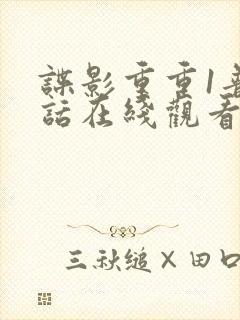 諜影重重1普
話在綫觀看
三秋縋×田口